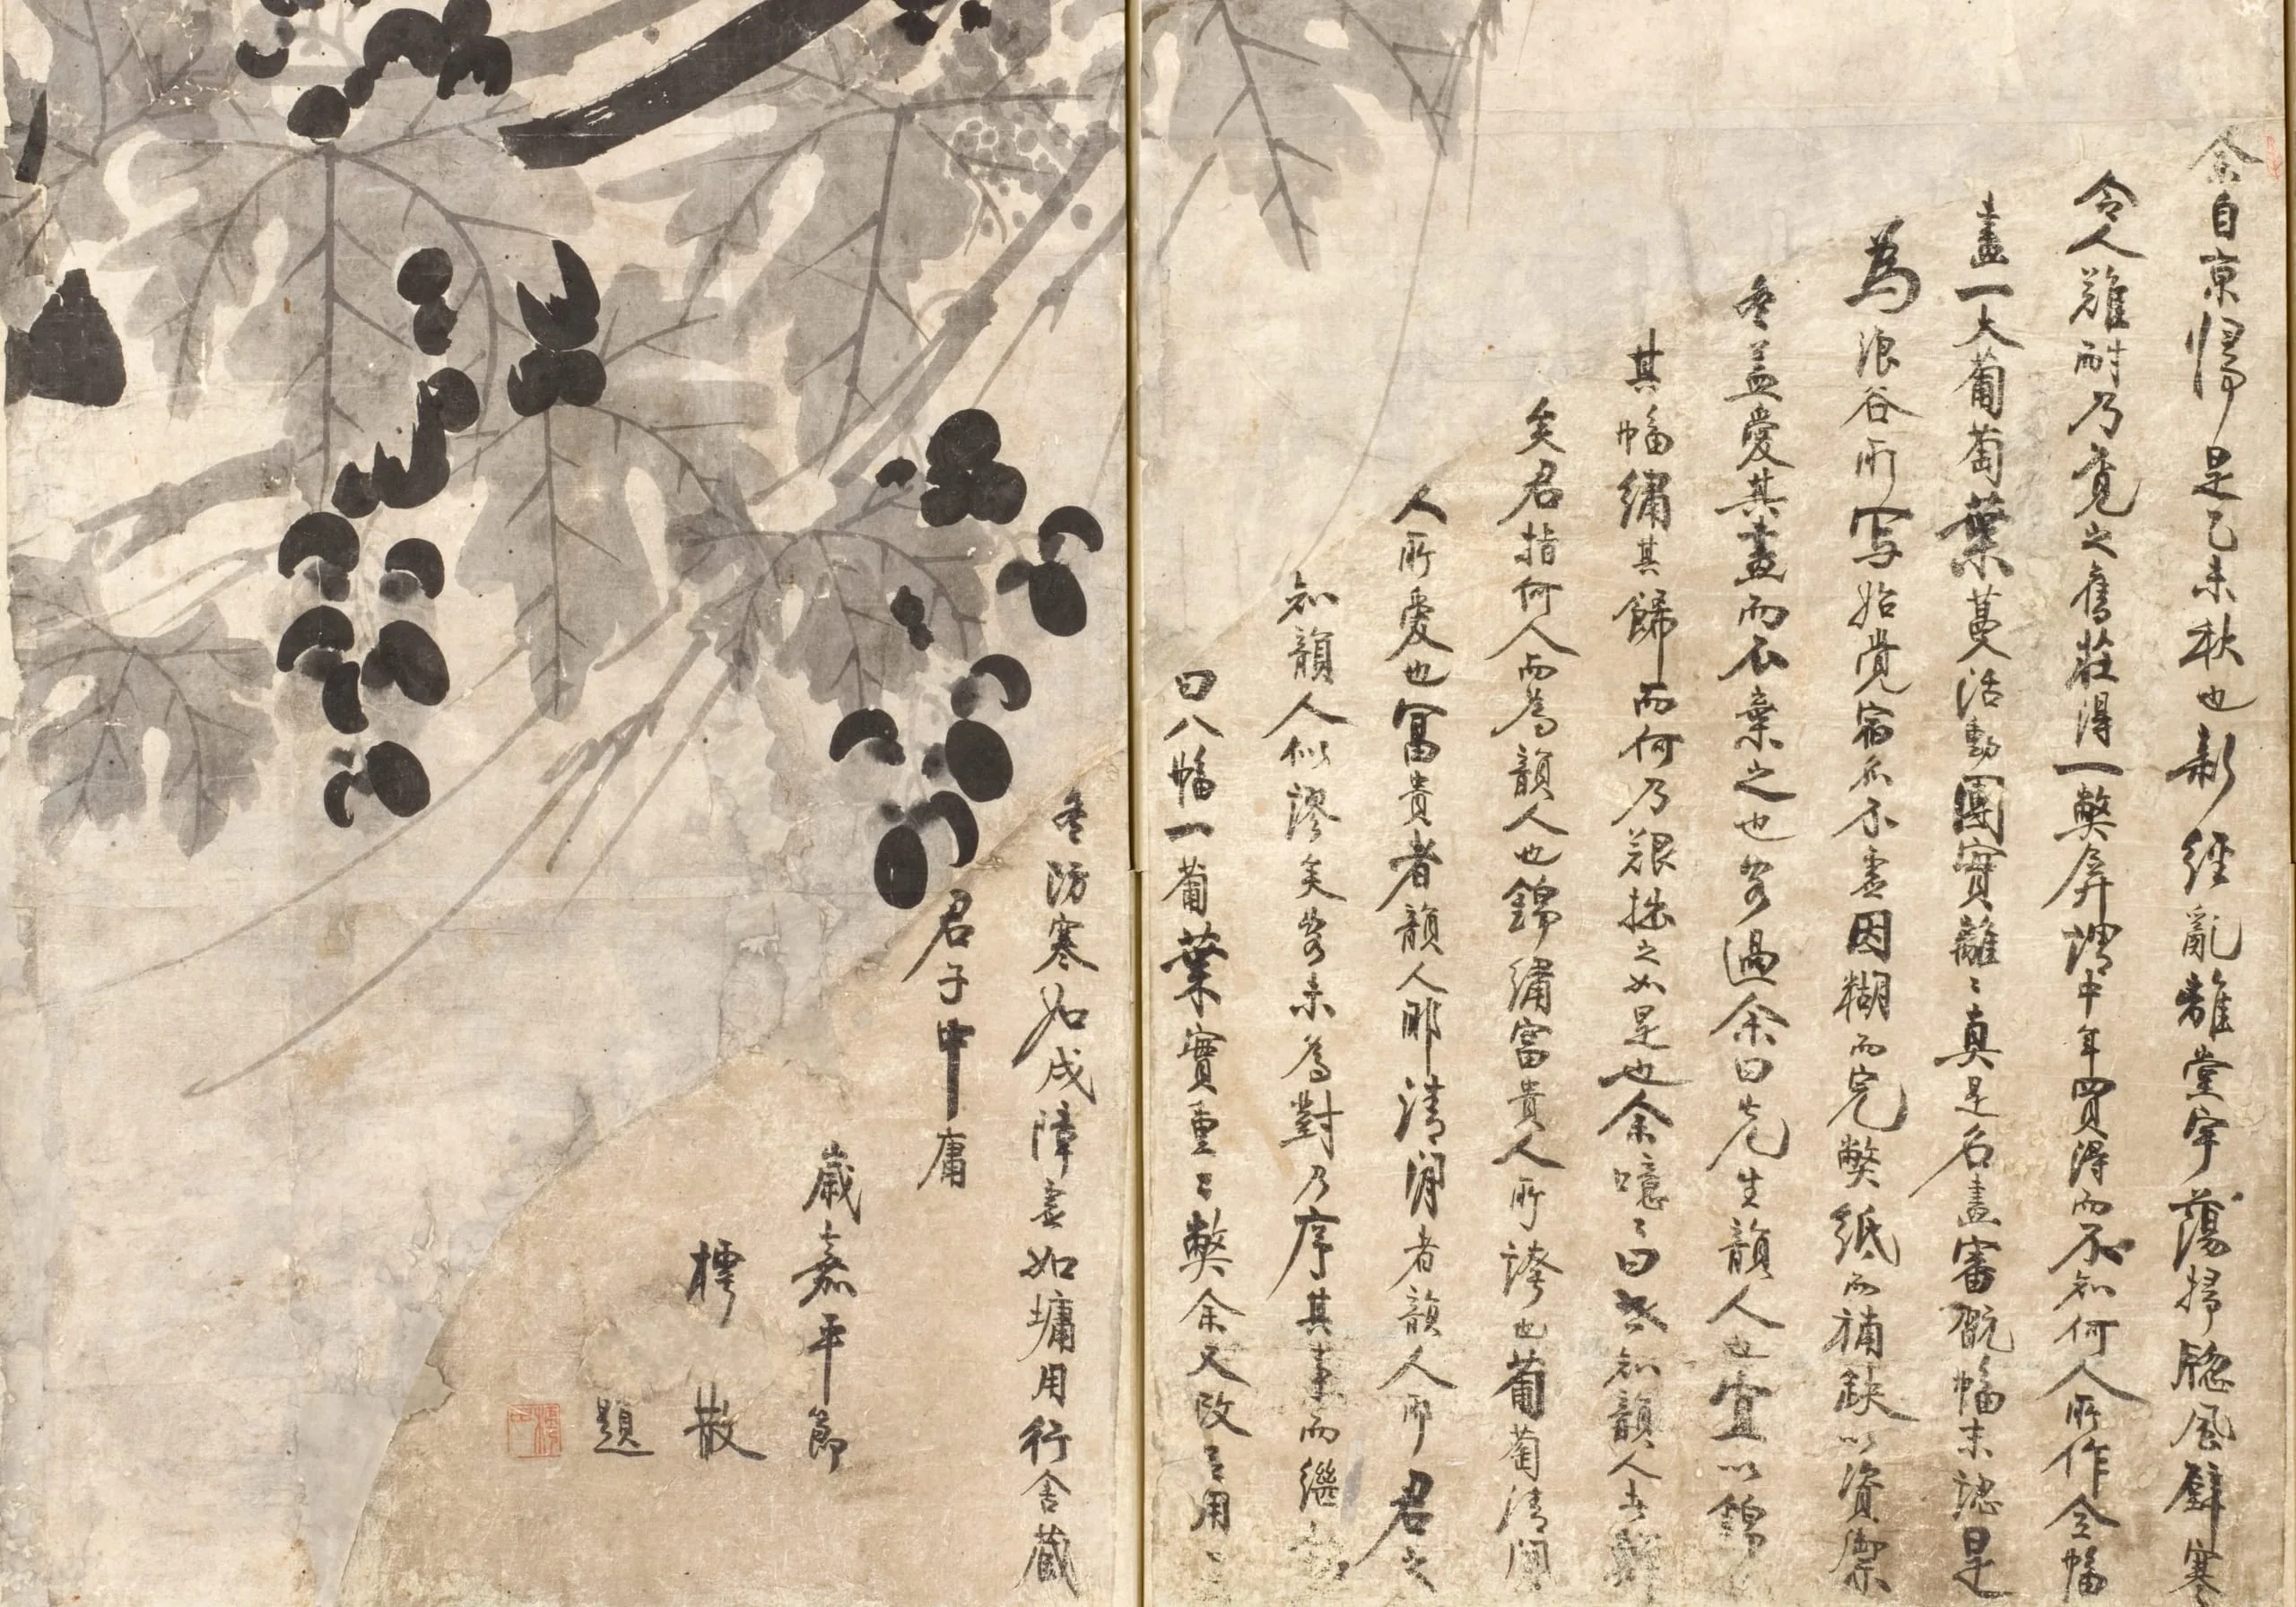 余自京得是乙未秋也新經亂離堂宇蕩掃牕風壁寒
令人難耐乃覓之舊莊得一弊屏謂中年買得而不知何人所作全幅
畫一大葡萄葉蔓活動團實離〻真是名畫審翫幅末認是
為浪谷所写始覚宿不盡因糊而完弊紙而補缺以資禦
冬盖愛其畫而不棄之也客過余曰先生韻人也宜以錦
其幅繡其歸而何乃艱拙之如是也余噫〻曰知韻人
矣君指何人而為韻人也錦繡富貴人所誇也葡萄清閒
人所愛也冨貴者韻人耶清閒者韻人耶君之
知韻人似謬矣客未為對乃序其事而繼
曰八幅一葡葉實重〻弊余又改用〻
冬防寒如戍障盡如墉用行舍藏
君子中庸
歲嘉平節
樗散
題